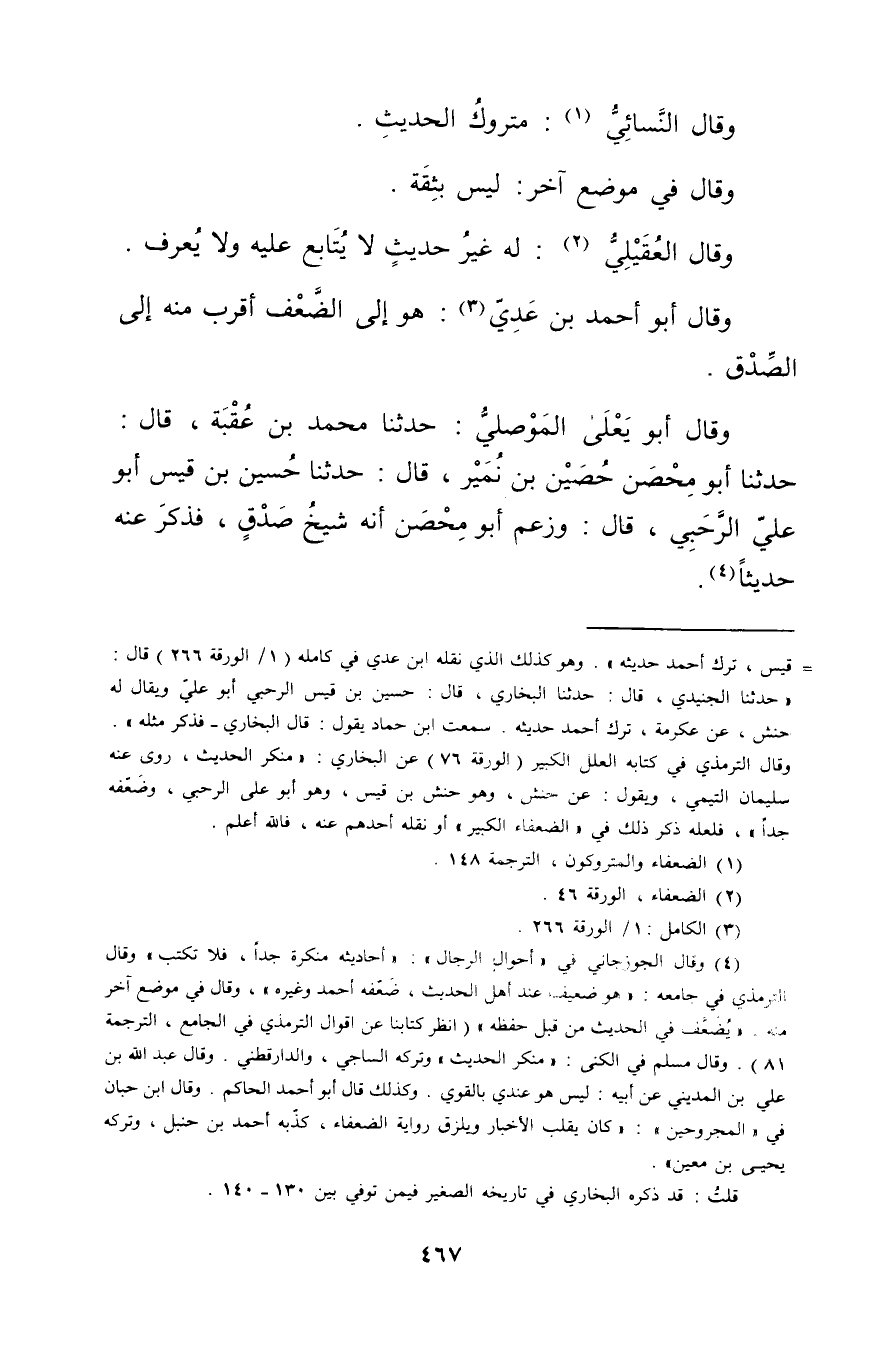 وقال النَّسائِيُّ (١) : متروكُ الحديثِ .
وقال في موضع آخر: ليس بثِقَة .
وقال العُقَيْلِيُّ (٢) : له غيرُ حديثٍ لا يُتَابع عليه ولا يُعرف .
وقال أبو أحمد بن عَدِيّ(٣) : هو إلى الضَّعْف أقرب منه إلى
الصِّدْق .
وقال أبو يَعْلَىٰ المَوْصليُّ : حدثنا محمد بن عُقْبَة ، قال :
حدثنا أبو مِحْصَن حُصَيْن بن نُمَيْر ، قال : حدثنا حُسين بن قيس أبو
عليّ الرَّحَبِي ، قال : وزعم أبو مِحْصَن أنه شيخُ صَدْقٍ ، فذكرَ عنه
حديثاً(٤).
= قيس ، ترك أحمد حديثه » . وهو كذلك الذي نقله ابن عدي في كامله ( ١/ الورقة ٢٦٦ ) قال :
« حدثنا الجنيدي ، قال : حدثنا البخاري ، قال : حسين بن قيس الرحبي أبو عليّ ويقال له
حنش ، عن عكرمة ، ترك أحمد حديثه . سمعت ابن حماد يقول : قال البخاري - فذكر مثله » .
وقال الترمذي في كتابه العلل الكبير ( الورقة ٧٦ ) عن البخاري : « منكر الحديث ، روى عنه
سليمان التيمي ، ويقول : عن حنش ، وهو حنش بن قيس ، وهو أبو علي الرحبي ، وضَعّفه
جداً » ، فلعله ذكر ذلك في « الضعفاء الكبير » أو نقله أحدهم عنه ، فالله أعلم .
(١) الضعفاء والمتروكون ، الترجمة ١٤٨ .
(٢) الضعفاء ، الورقة ٤٦ .
(٣) الكامل : ١/ الورقة ٢٦٦ .
(٤) وقال الجوزجاني في « أحوال الرجال » : « أحاديثه منكرة جداً ، فلا تكتب » وقال
الترمذي في جامعه : « هو ضعيف عند أهل الحديث ، ضَعّفه أحمد وغيره » ، وقال في موضع آخر
منه . « يُضَعَّف في الحديث من قبل حفظه » ( انظر كتابنا عن اقوال الترمذي في الجامع ، الترجمة
٨١ ) . وقال مسلم في الكنى : « منكر الحديث » وتركه الساجي ، والدارقطني . وقال عبد الله بن
علي بن المديني عن أبيه : ليس هو عندي بالقوي . وكذلك قال أبو أحمد الحاكم . وقال ابن حبان
في « المجروحين » : « كان يقلب الأخبار ويلزق رواية الضعفاء ، كذّبه أحمد بن حنبل ، وتركه
يحيى بن معين» .
قلتُ : قد ذكره البخاري في تاريخه الصغير فيمن توفي بين ١٣٠ - ١٤٠ .
٤٦٧